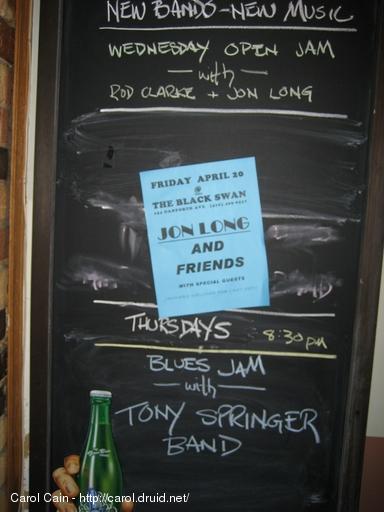 NEW BANDS - NEW MUSIC
WEDNESDAY OPEN JAM
with
ROD CLARKE + JON LONG
FRIDAY APRIL 20
@
THE BLACK SWAN
DANFORTH AVE.
JON LONG
AND
FRIENDS
WITH SPECIAL GUESTS
THURSDAYS 8:30pm
BLUES JAM
with
TONY SPRINGER
BAND
Carol Cain - http://carol.druid.net/